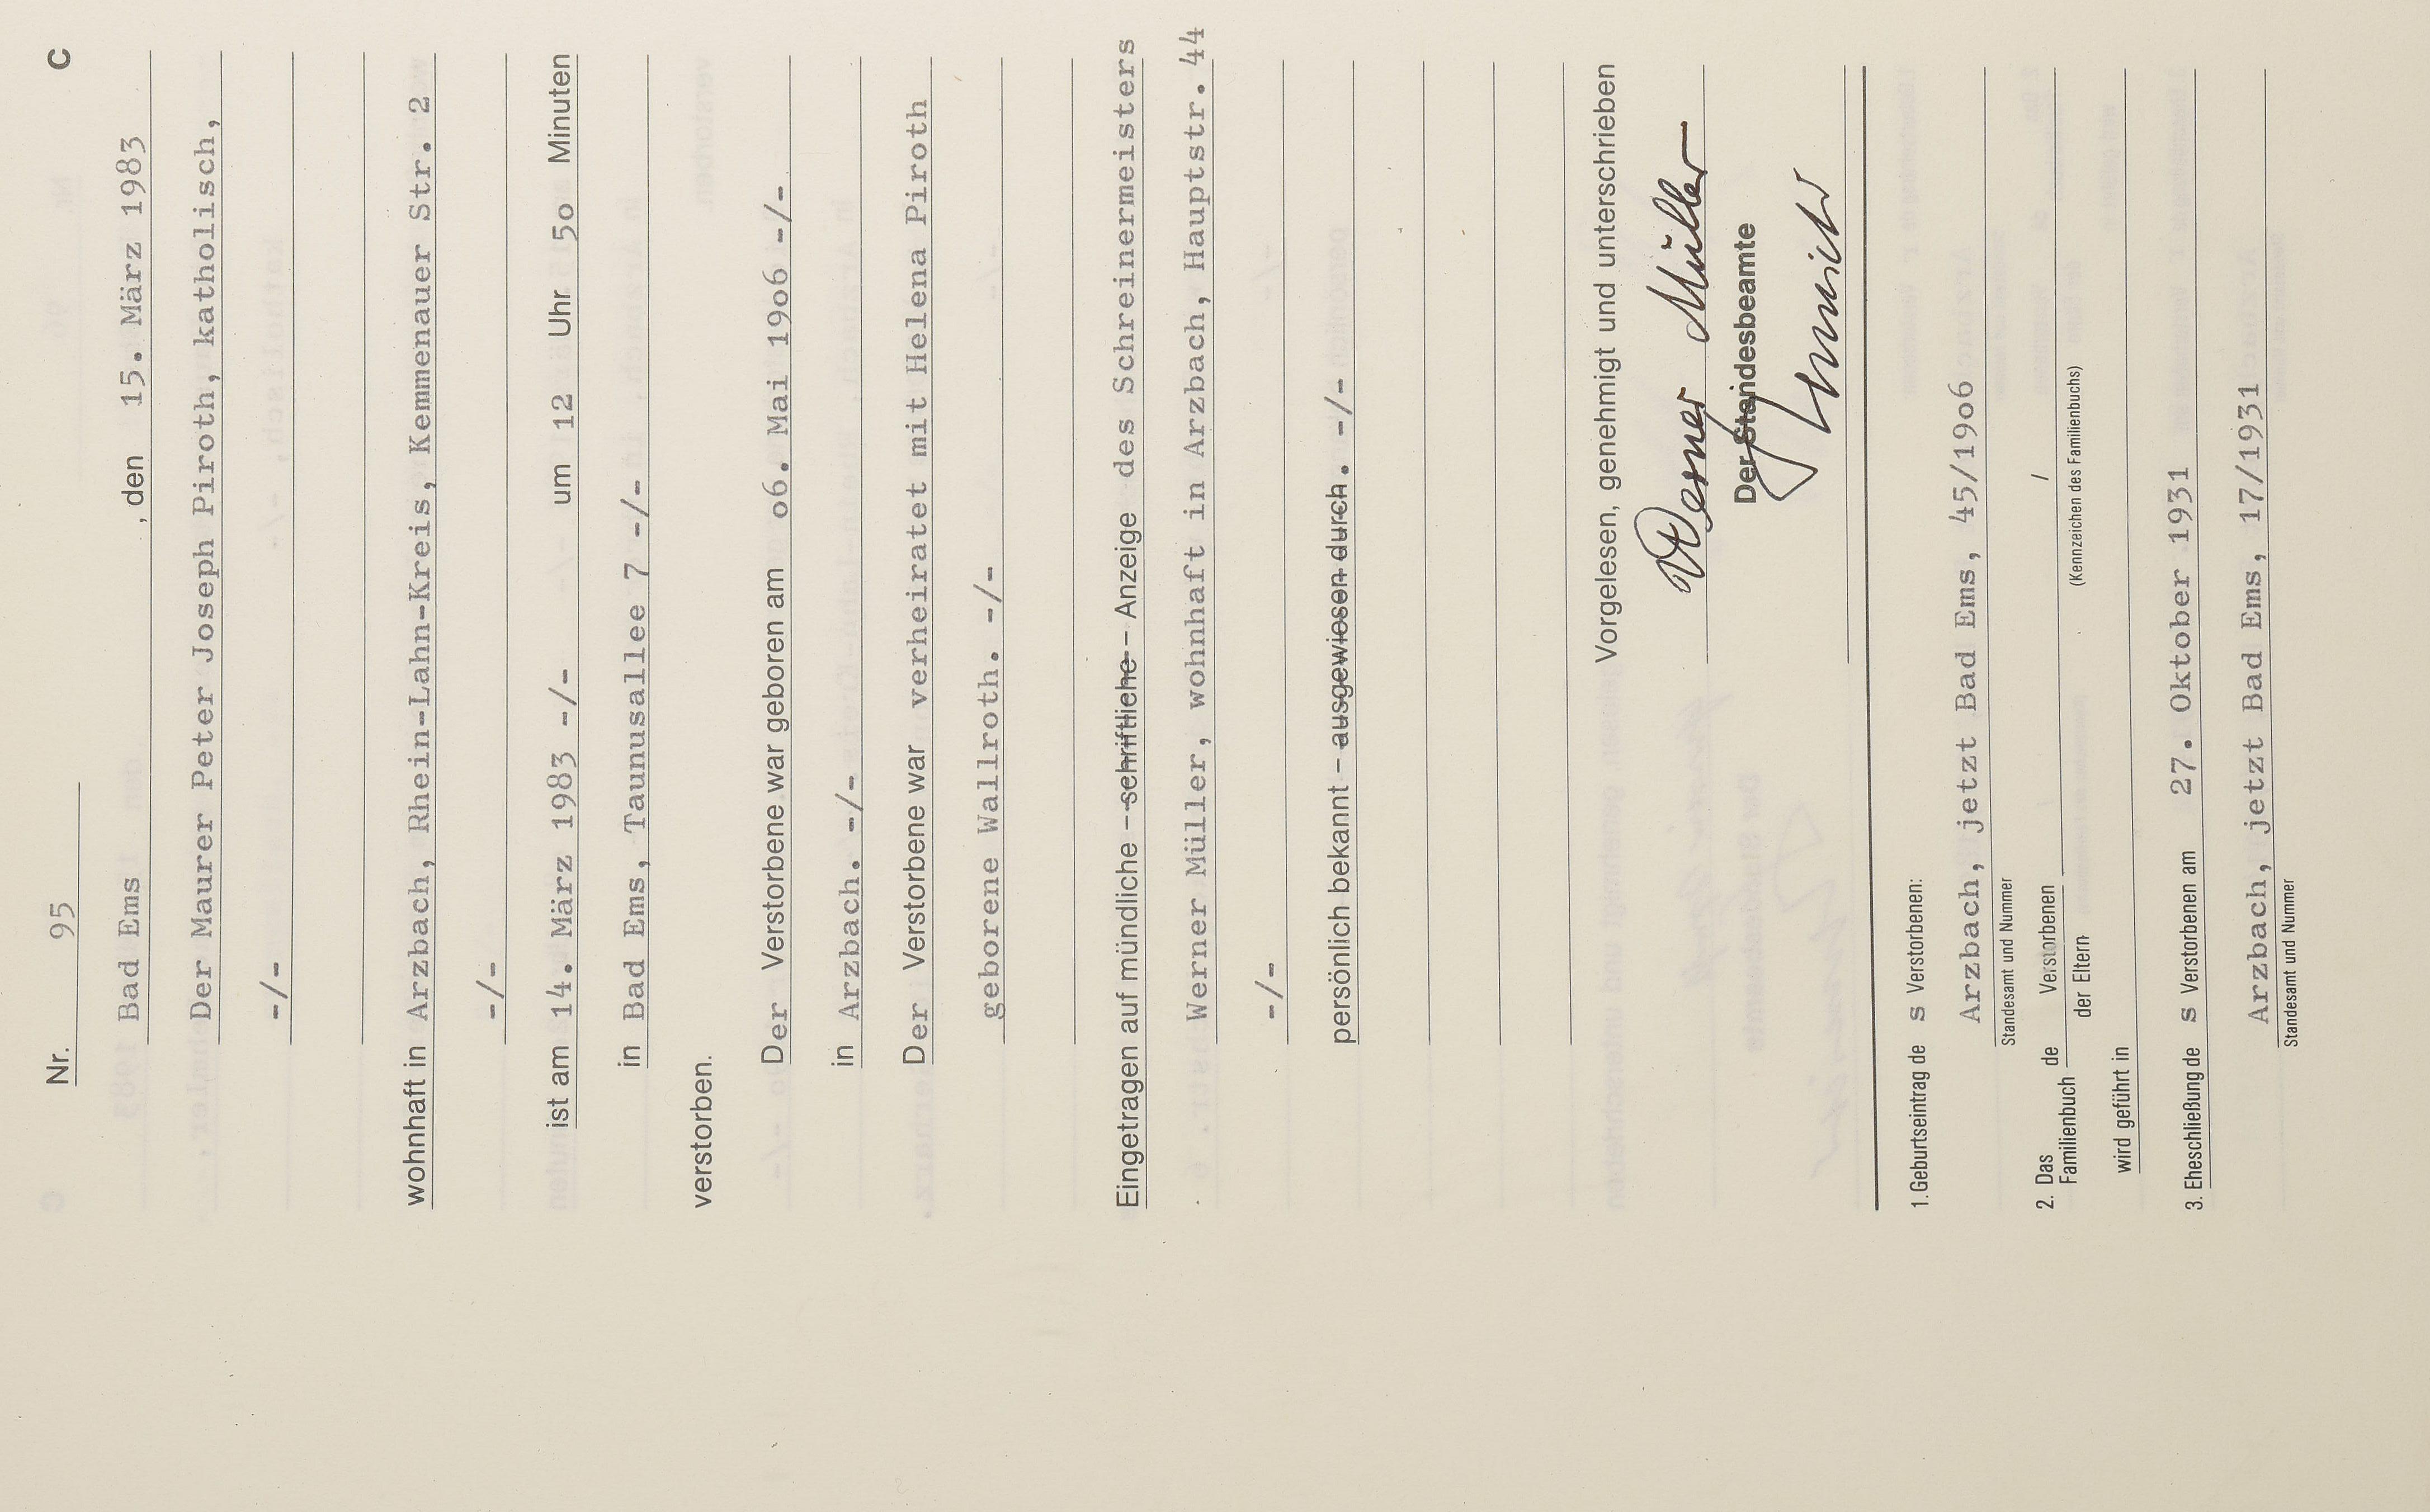 Nr. 95 C
Bad Ems , den 15. März 1983
Der Maurer Peter Joseph Piroth, katholisch,
-/-
wohnhaft in Arzbach, Rhein-Lahn-Kreis, Kemmenauer Str. 2
-/-
ist am 14. März 1983 -/- um 12 Uhr 5o Minuten
in Bad Ems, Taunusallee 7 -/-
verstorben.
Der Verstorbene war geboren am o6. Mai 19o6 -/-
in Arzbach. -/-
Der Verstorbene war verheiratet mit Helena Piroth
geborene Wallroth. -/-
Eingetragen auf mündliche – schriftliche – Anzeige des Schreinermeisters
Werner Müller, wohnhaft in Arzbach, Hauptstr. 44
-/-
persönlich bekannt – ausgewiesen durch . -/-
Vorgelesen, genehmigt und unterschrieben
Werner Müller
Der Standesbeamte
1. Geburtseintrag de s Verstorbenen:
Arzbach, jetzt Bad Ems, 45/19o6
Standesamt und Nummer
2. Das Familienbuch de Verstorbenen /
der Eltern (Kennzeichen des Familienbuchs)
wird geführt in
3. Eheschließung de s Verstorbenen am 27. Oktober 1931
Arzbach, jetzt Bad Ems, 17/1931
Standesamt und Nummer